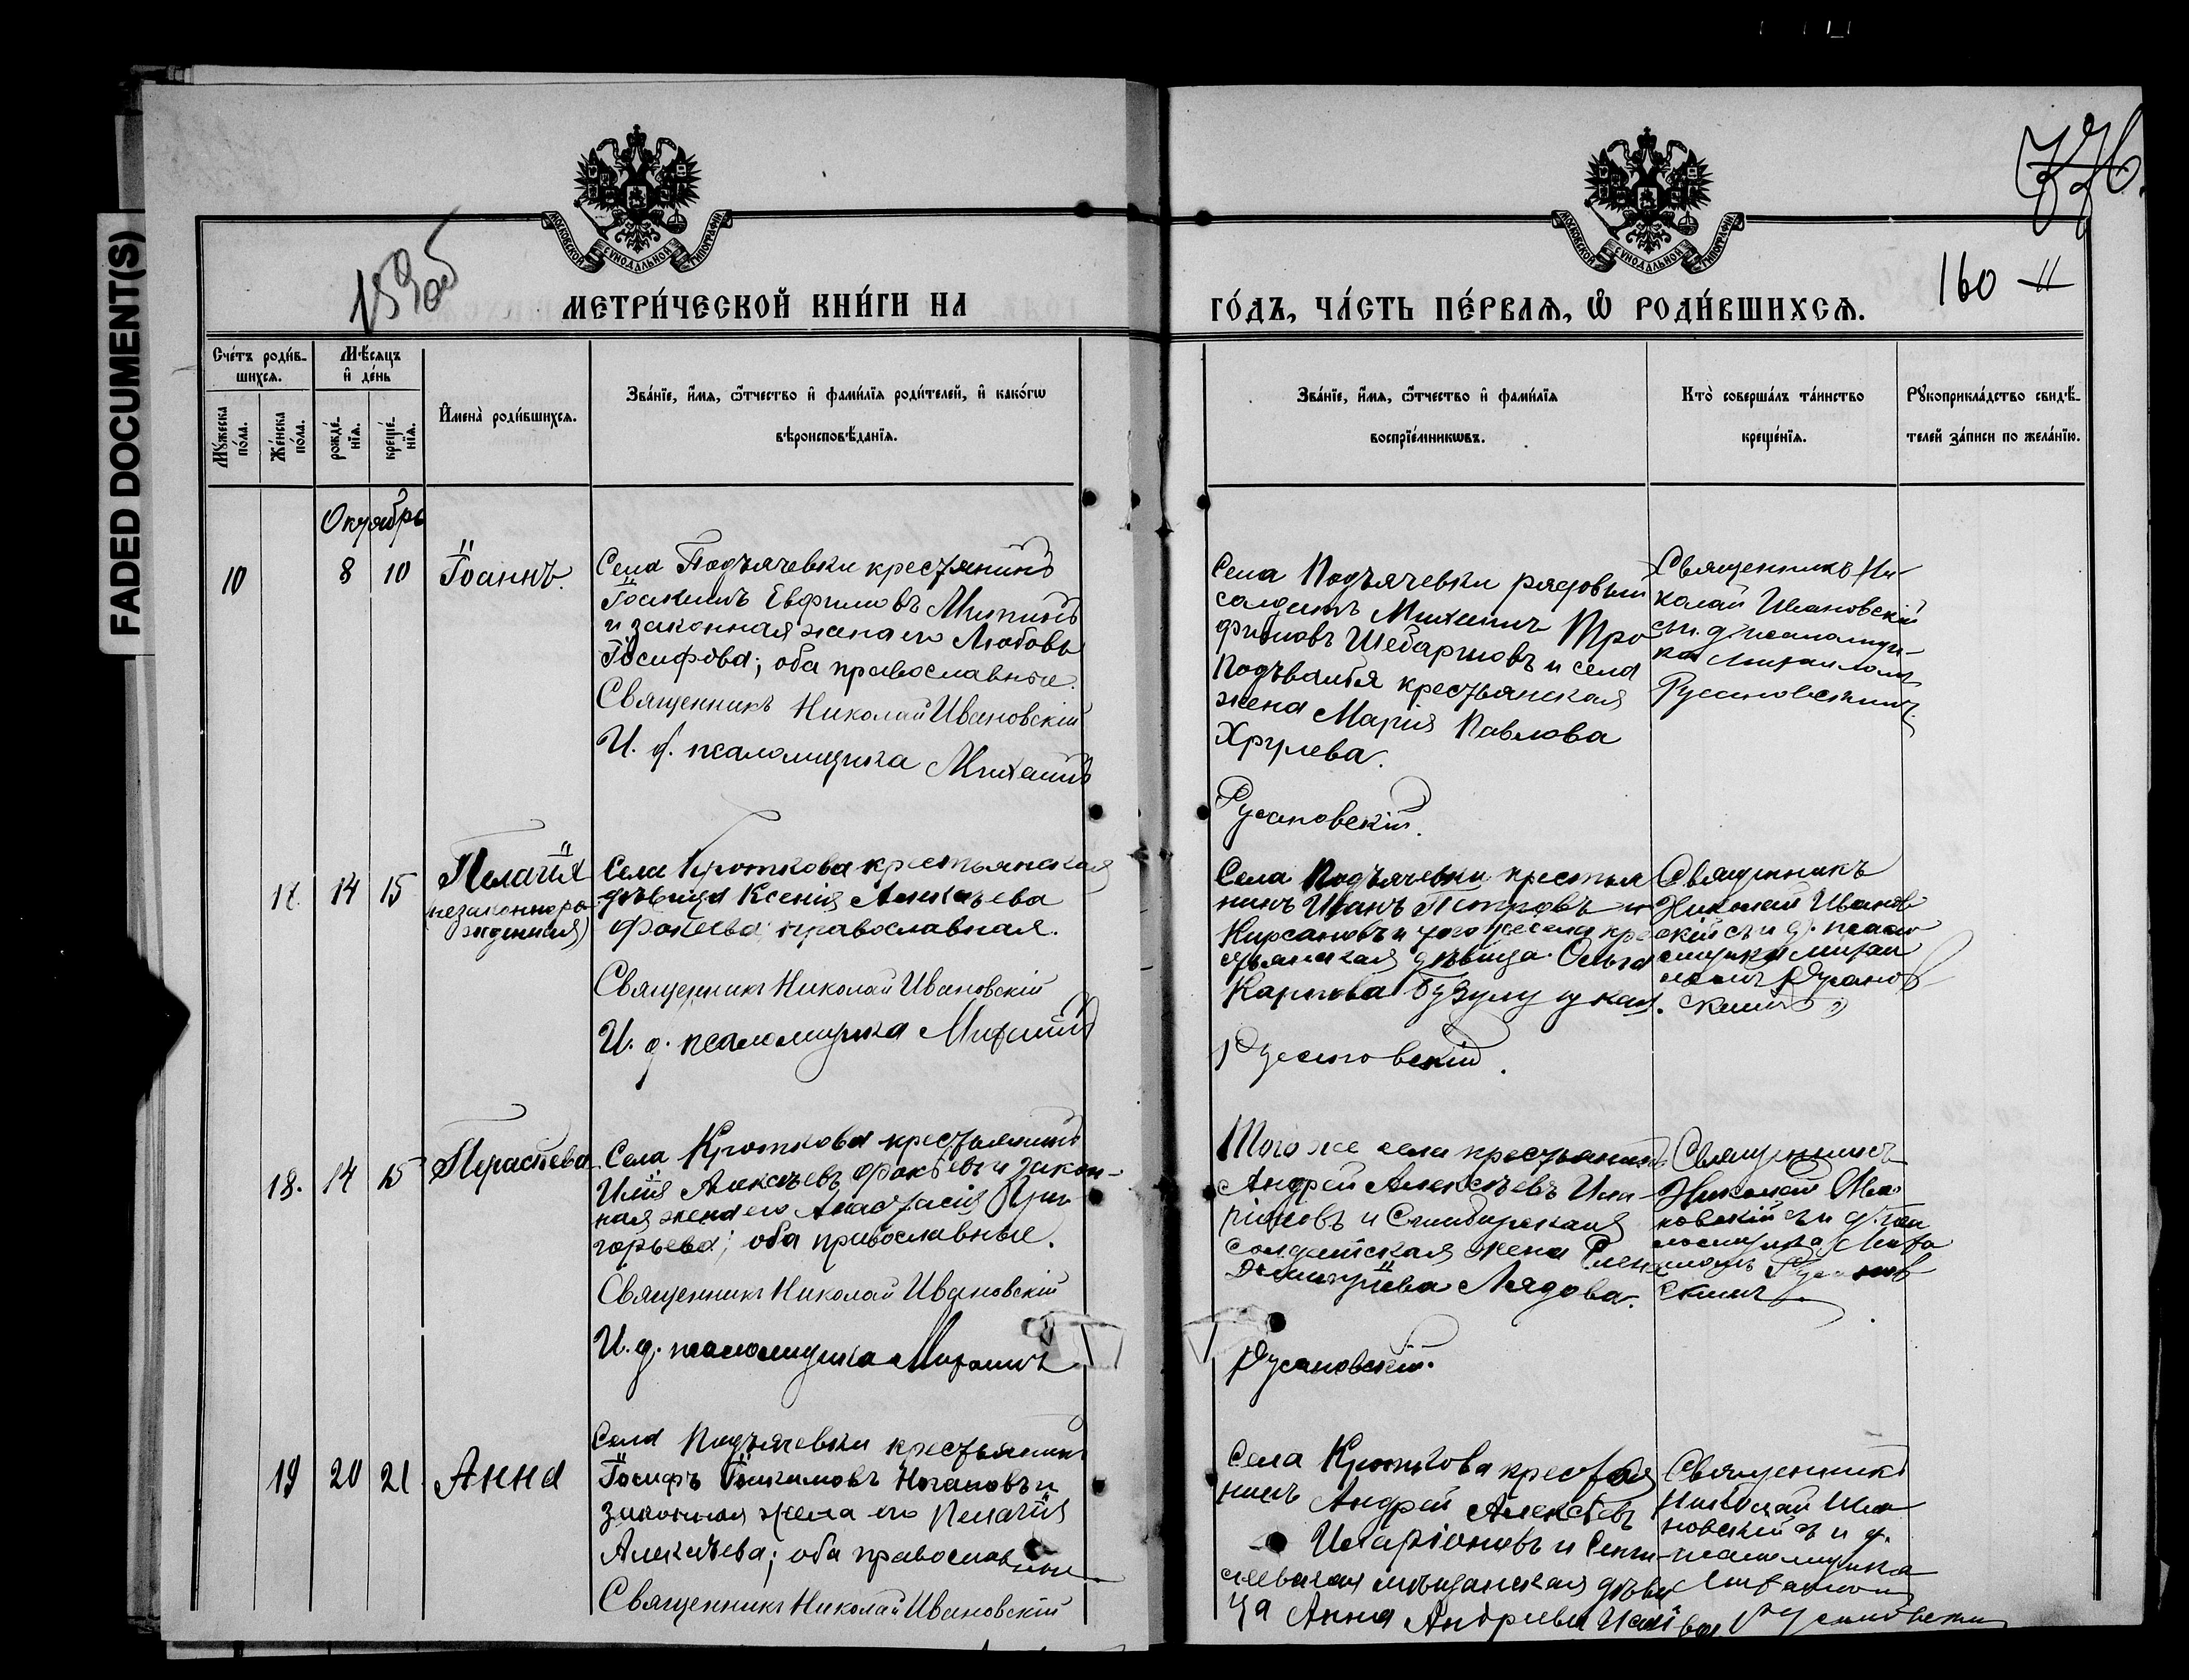 FADED DOCUMENT(S)
МОСКОВСКОЙ СѴНОДАЛЬНОЙ ТИПОГРАФІИ
МОСКОВСКОЙ СѴНОДАЛЬНОЙ ТИПОГРАФІИ
160
МЕТРИ́ЧЕСКОЙ КНИ́ГИ НА
ГО́ДЪ, ЧА́СТЬ ПЕ́РВАѦ, Ѽ РОДИ́ВШИХСѦ.
Сче́тъ роди́в-
шихсѧ.
Мѣ́сѧцъ
и҆ де́нь
Мꙋ́жеска
по́ла.
Же́нска
по́ла.
рожде́-
нїѧ.
креще́-
нїѧ.
И҆мена̀ роди́вшихсѧ.
Зва́нїе, и҆́мѧ, ѻ҆́тчество и҆ фами́лїѧ роди́телей, и҆ како́гѡ
вѣроисповѣ́данїѧ.
Зва́нїе, и҆́мѧ, ѻ҆́тчество и҆ фами́лїѧ
воспрїе́мникѡвъ.
Кто̀ соверша́лъ та́инство
креще́нїѧ.
Рꙋкоприкла́дство свидѣ́-
телей за́писи по жела́нїю.
Октябрь
10
8
10
Іоаннъ.
Села Подъячевки крестьянинъ
Іоакимъ Евфимовъ Митинъ
и законная жена его Любовь
Іосифова; оба православные.
Священникъ Николай Ивановскій
И. д. псаломщика Михаилъ
Села Подъячевки рядовый
солдатъ Михаилъ Тро-
фимовъ Шебаршовъ и села
Подъвалья крестьянская
жена Марія Павлова
Хрулева.
Русановскій.
Священникъ Ни-
колай Ивановскій
съ и. д. псаломщи-
ка Михаиломъ
Русановскимъ.
14
15
Пелагія
незаконноро-
жденная
Села Кроткова крестьянская
дѣвица Ксенія Алексѣева
Фокеева; православная.
Священникъ Николай Ивановскій
И. д. псаломщика Михаилъ
Села Подъячевки крестья
нинъ Иванъ Петровъ
Кирсановъ и того же села кре
стьянская дѣвица Ольга
Карпова
Русановскій.
Священникъ
Николай Иванов
скій съ и. д. псало
мщика Михаи
ломъ Русанов
скимъ
18.
14
15
Параскева
Села Кроткова крестьянинъ
Илія Алексѣевъ Фокѣевъ и закон-
ная жена его Анастасія Гри-
горьева; оба православные.
Священникъ Николай Ивановскій
И. д. псаломщика Михаилъ
Того же села крестьянинъ
Андрей Алексѣевъ Ила-
ріоновъ и Симбирская
солдатская жена Елена
Димитріева Лядова.
Русановскій.
Священникъ
Николай Ива-
новскій съ и. д. пса
ломщика Миха
иломъ Русанов
скимъ
19
20
21.
Анна
Села Подъячевки крестьянинъ
Іосифъ Іоакимовъ Ногановъ и
законная жена его Пелагія
Алексѣева; оба православные
Священникъ Николай Ивановскій
Села Кроткова крестья
нинъ Андрей Алексѣевъ
Иларіоновъ и Сенги-
леевская мѣщанская дѣви
ца Анна Андреева
Священникъ
Николай Ива
новскій съ и. д.
псаломщика
Михаиломъ
Русановскимъ